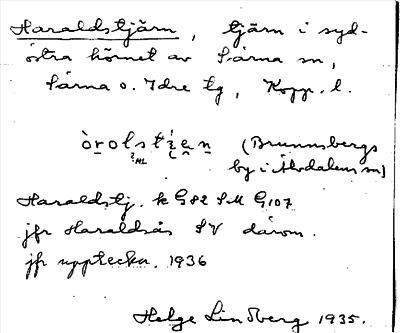 Haraldstjärn, tjärn i syd-
östra hörnet av Särna sn,
Särna o. Idre tg, Kopp. l.
(Brunnsbergs
by i Älvdalens sn)
Haraldstj. k G82 SM G107
jfr Haraldsås SV därom.
jfr uppteckn. 1936
Helge Lindberg 1935.